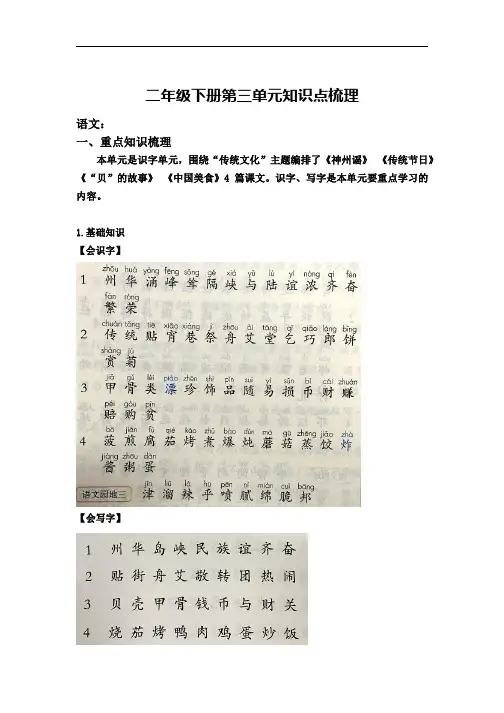 二年级下册第三单元知识点梳理
语文：
一、重点知识梳理
本单元是识字单元，围绕“传统文化”主题编排了《神州谣》 《传统节日》
《“贝”的故事》 《中国美食》4 篇课文。识字、写字是本单元要重点学习的
内容。
1.基础知识
【会识字】
zhōu huá yǒng fēng sǒng gé xiá yǔ lù yì nóng qí fèn
1 州 华 涌 峰 耸 隔 峡 与 陆 谊 浓 齐 奋
fán róng
繁 荣
chuán tǒng tiē xiāo xiàng jì zhōu ài táng qǐ qiǎo láng bǐng
2 传 统 贴 宵 巷 祭 舟 艾 堂 乞 巧 郎 饼
shǎng jú
赏 菊
jiǎ gǔ lèi piào zhēn shì pǐn suí yì sǔn bì cái zhuàn
3 甲 骨 类 漂 珍 饰 品 随 易 损 币 财 赚
péi gòu pín
赔 购 贫
bō jiān fǔ qié kǎo zhǔ bào dùn mó gū zhēng jiǎo zhá
4 菠 煎 腐 茄 烤 煮 爆 炖 蘑 菇 蒸 饺 炸
jiàng zhōu dàn
酱 粥 蛋
jīn liū là hū pēn nì mián cuì bāng
语文园地三 津 溜 辣 乎 喷 腻 绵 脆 邦
【会写字】
1 州 华 岛 峡 民 族 谊 齐 奋
2 贴 街 舟 艾 敬 转 团 热 闹
3 贝 壳 甲 骨 钱 币 与 财 关
4 烧 茄 烤 鸭 肉 鸡 蛋 炒 饭